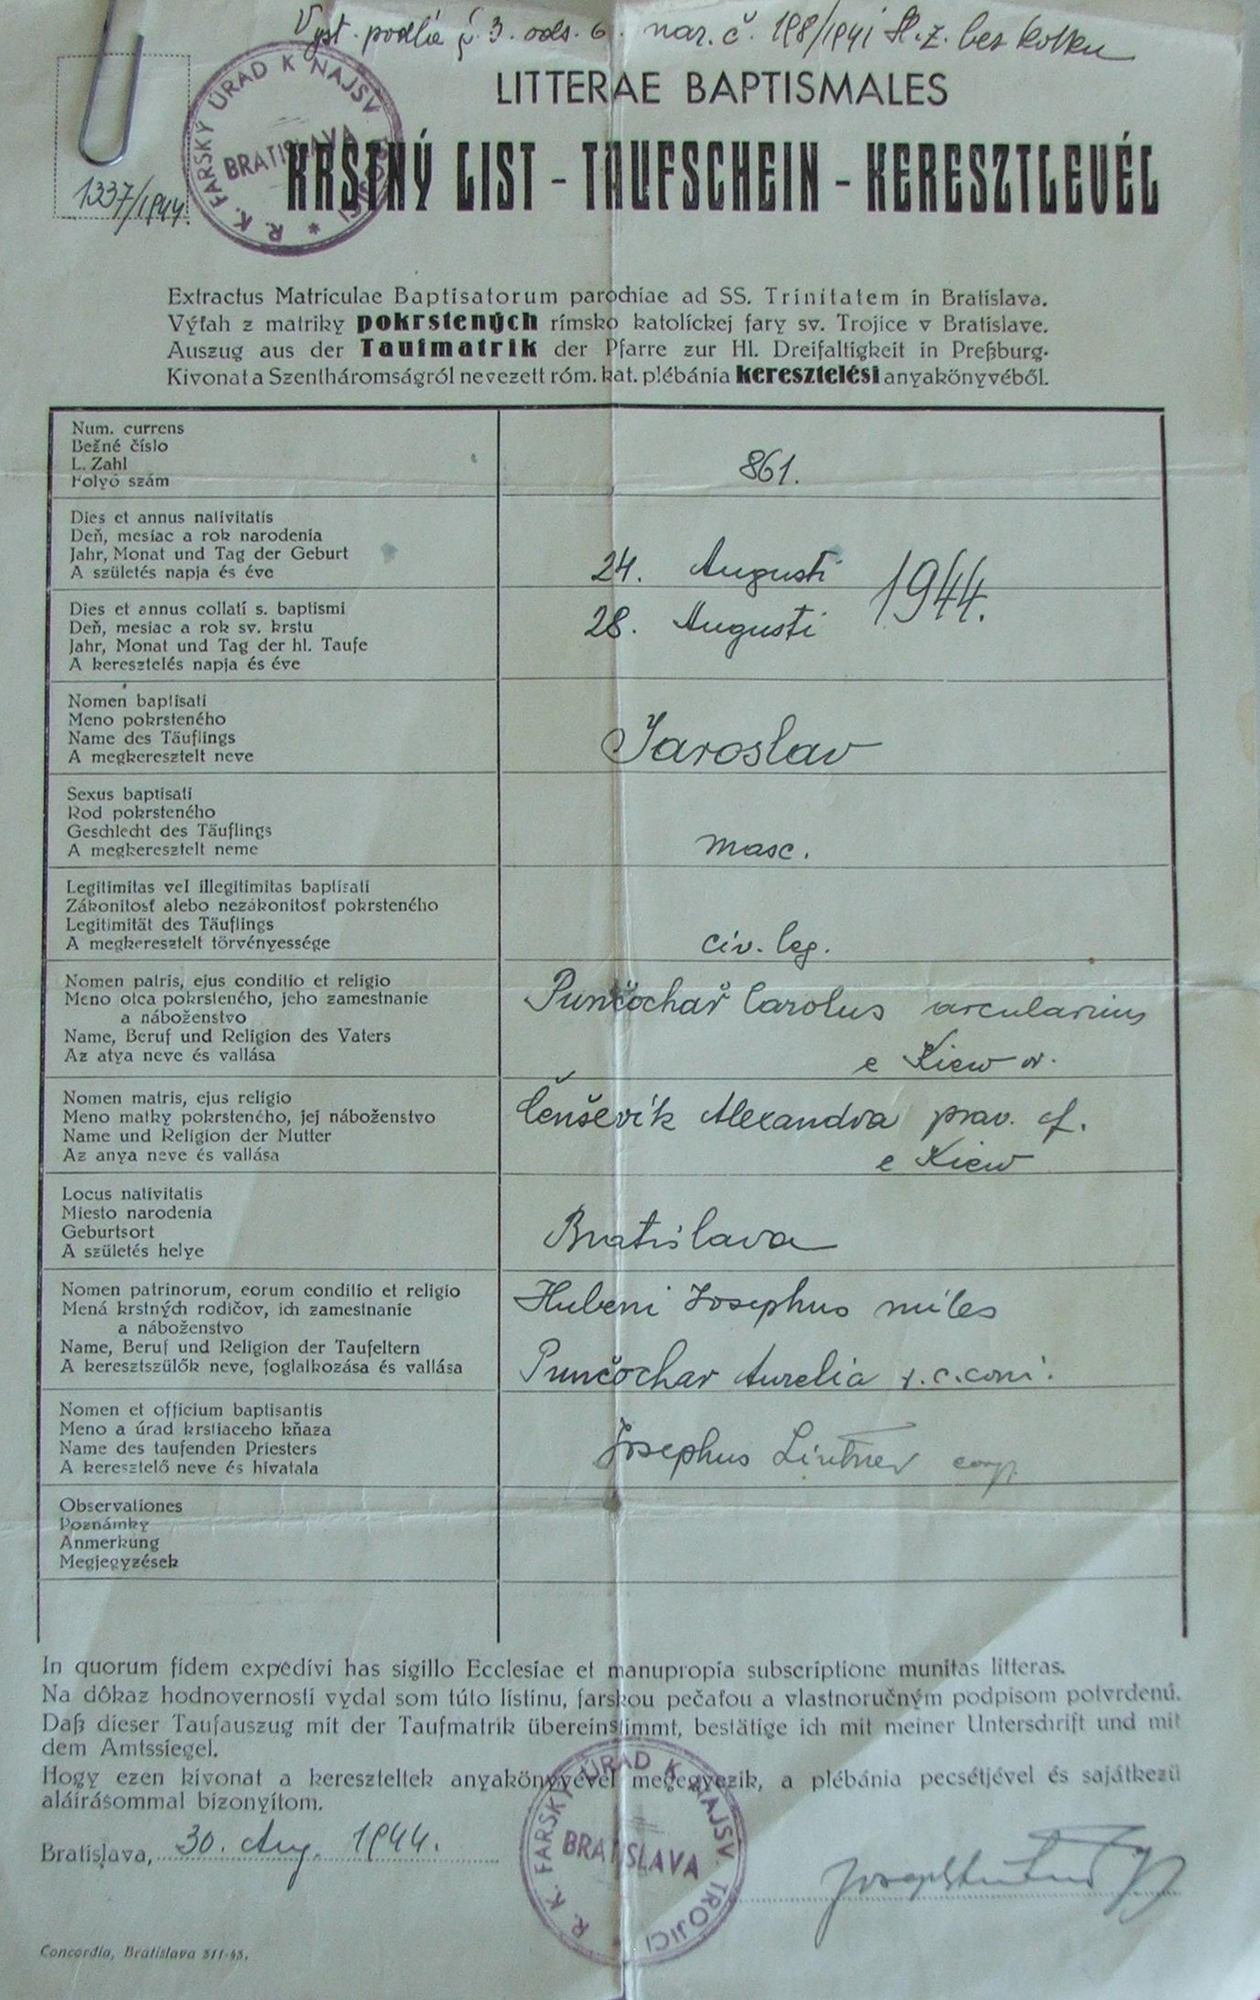 Vyst. podľa §. 3. ods. 6. nar. č. 198/1941 Sl. z. bez kolku
R. K. FARSKÝ ÚRAD K NAJSV. TROJICI
BRATISLAVA
1337/1944.
LITTERAE BAPTISMALES
KRSTNÝ LIST - TAUFSCHEIN - KERESZTLEVÉL
Extractus Matriculae Baptisatorum parochiae ad SS. Trinitatem in Bratislava.
Výťah z matriky pokrstených rímsko katolíckej fary sv. Trojice v Bratislave.
Auszug aus der Taufmatrik der Pfarre zur Hl. Dreifaltigkeit in Preßburg.
Kivonat a Szentháromságról nevezett róm. kat. plébánia keresztelési anyakönyvéből.
Num. currens
Bežné číslo
L. Zahl
Folyó szám
861.
Dies et annus nativitatis
Deň, mesiac a rok narodenia
Jahr, Monat und Tag der Geburt
A születés napja és éve
24. Augusti 1944.
Dies et annus collati s. baptismi
Deň, mesiac a rok sv. krstu
Jahr, Monat und Tag der hl. Taufe
A keresztelés napja és éve
28. Augusti
Nomen baptisati
Meno pokrsteného
Name des Täuflings
A megkeresztelt neve
Jaroslav
Sexus baptisati
Rod pokrsteného
Geschlecht des Täuflings
A megkeresztelt neme
masc.
Legitimitas vel illegitimitas baptisati
Zákonitosť alebo nezákonitosť pokrsteného
Legitimität des Täuflings
A megkeresztelt törvényessége
civ. leg.
Nomen patris, ejus conditio et religio
Meno otca pokrsteného, jeho zamestnanie
a náboženstvo
Name, Beruf und Religion des Vaters
Az atya neve és vallása
Punčochař Carolus arcularius
e Kiew
Nomen matris, ejus religio
Meno matky pokrsteného, jej náboženstvo
Name und Religion der Mutter
Az anya neve és vallása
Čenševík Alexandra prav. cf.
e Kiew
Locus nativitatis
Miesto narodenia
Geburtsort
A születés helye
Bratislava
Nomen patrinorum, eorum conditio et religio
Mená krstných rodičov, ich zamestnanie
a náboženstvo
Name, Beruf und Religion der Taufeltern
A keresztszülők neve, foglalkozása és vallása
Hubeni Josephus miles
Punčochar Aurelia r. c. coni.
Nomen et officium baptisantis
Meno a úrad krstiaceho kňaza
Name des taufenden Priesters
A keresztelő neve és hivatala
Josephus Lintner coop.
Observationes
Poznámky
Anmerkung
Megjegyzések
In quorum fidem expedivi has sigillo Ecclesiae et manupropia subscriptione munitas litteras.
Na dôkaz hodnovernosti vydal som túto listinu, farskou pečaťou a vlastnoručným podpisom potvrdenú.
Daß dieser Taufauszug mit der Taufmatrik übereinstimmt, bestätige ich mit meiner Unterschrift und mit
dem Amtssiegel.
Hogy ezen kivonat a kereszteltek anyakönyvével megegyezik, a plébánia pecsétjével és sajátkezű
aláirásommal bizonyítom.
Bratislava, 30. Aug. 1944.
R. K. FARSKÝ ÚRAD K NAJSV. TROJICI
BRATISLAVA
Concordia, Bratislava 311-43.